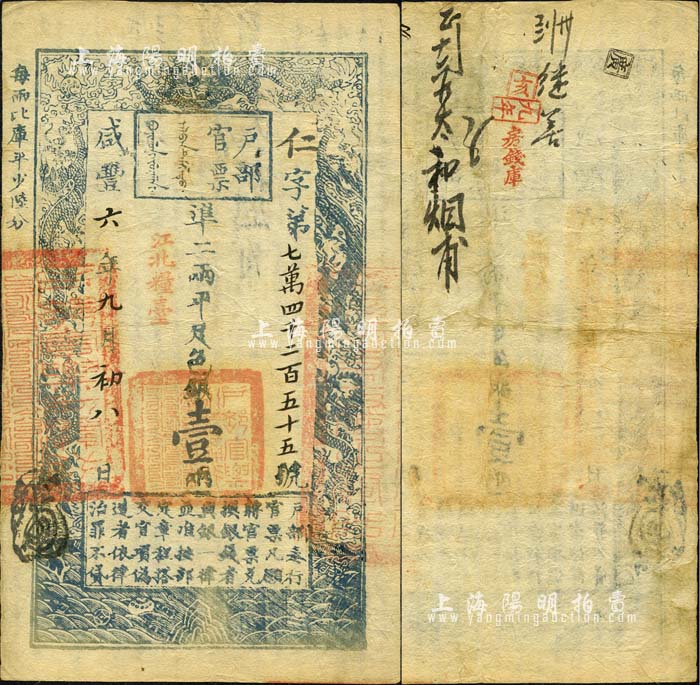 每兩比庫平少陸分
戶部
官票
仁字第七萬四千二百五十五號
準二兩平足色銀壹兩
江北糧臺
咸豐六年九月初八日
戶部奏行
官票凡願
將官票兌
換銀錢者
與銀一律
並准按部
定章程搭
交官項偽
造者依律
治罪不貸
戶部官票
繼善
太和烟甫
房錢庫
上海陽明拍賣
www.yangmingauction.com
上海陽明拍賣
www.yangmingauction.com
上海陽明拍賣
www.yangmingauction.com
上海陽明拍賣